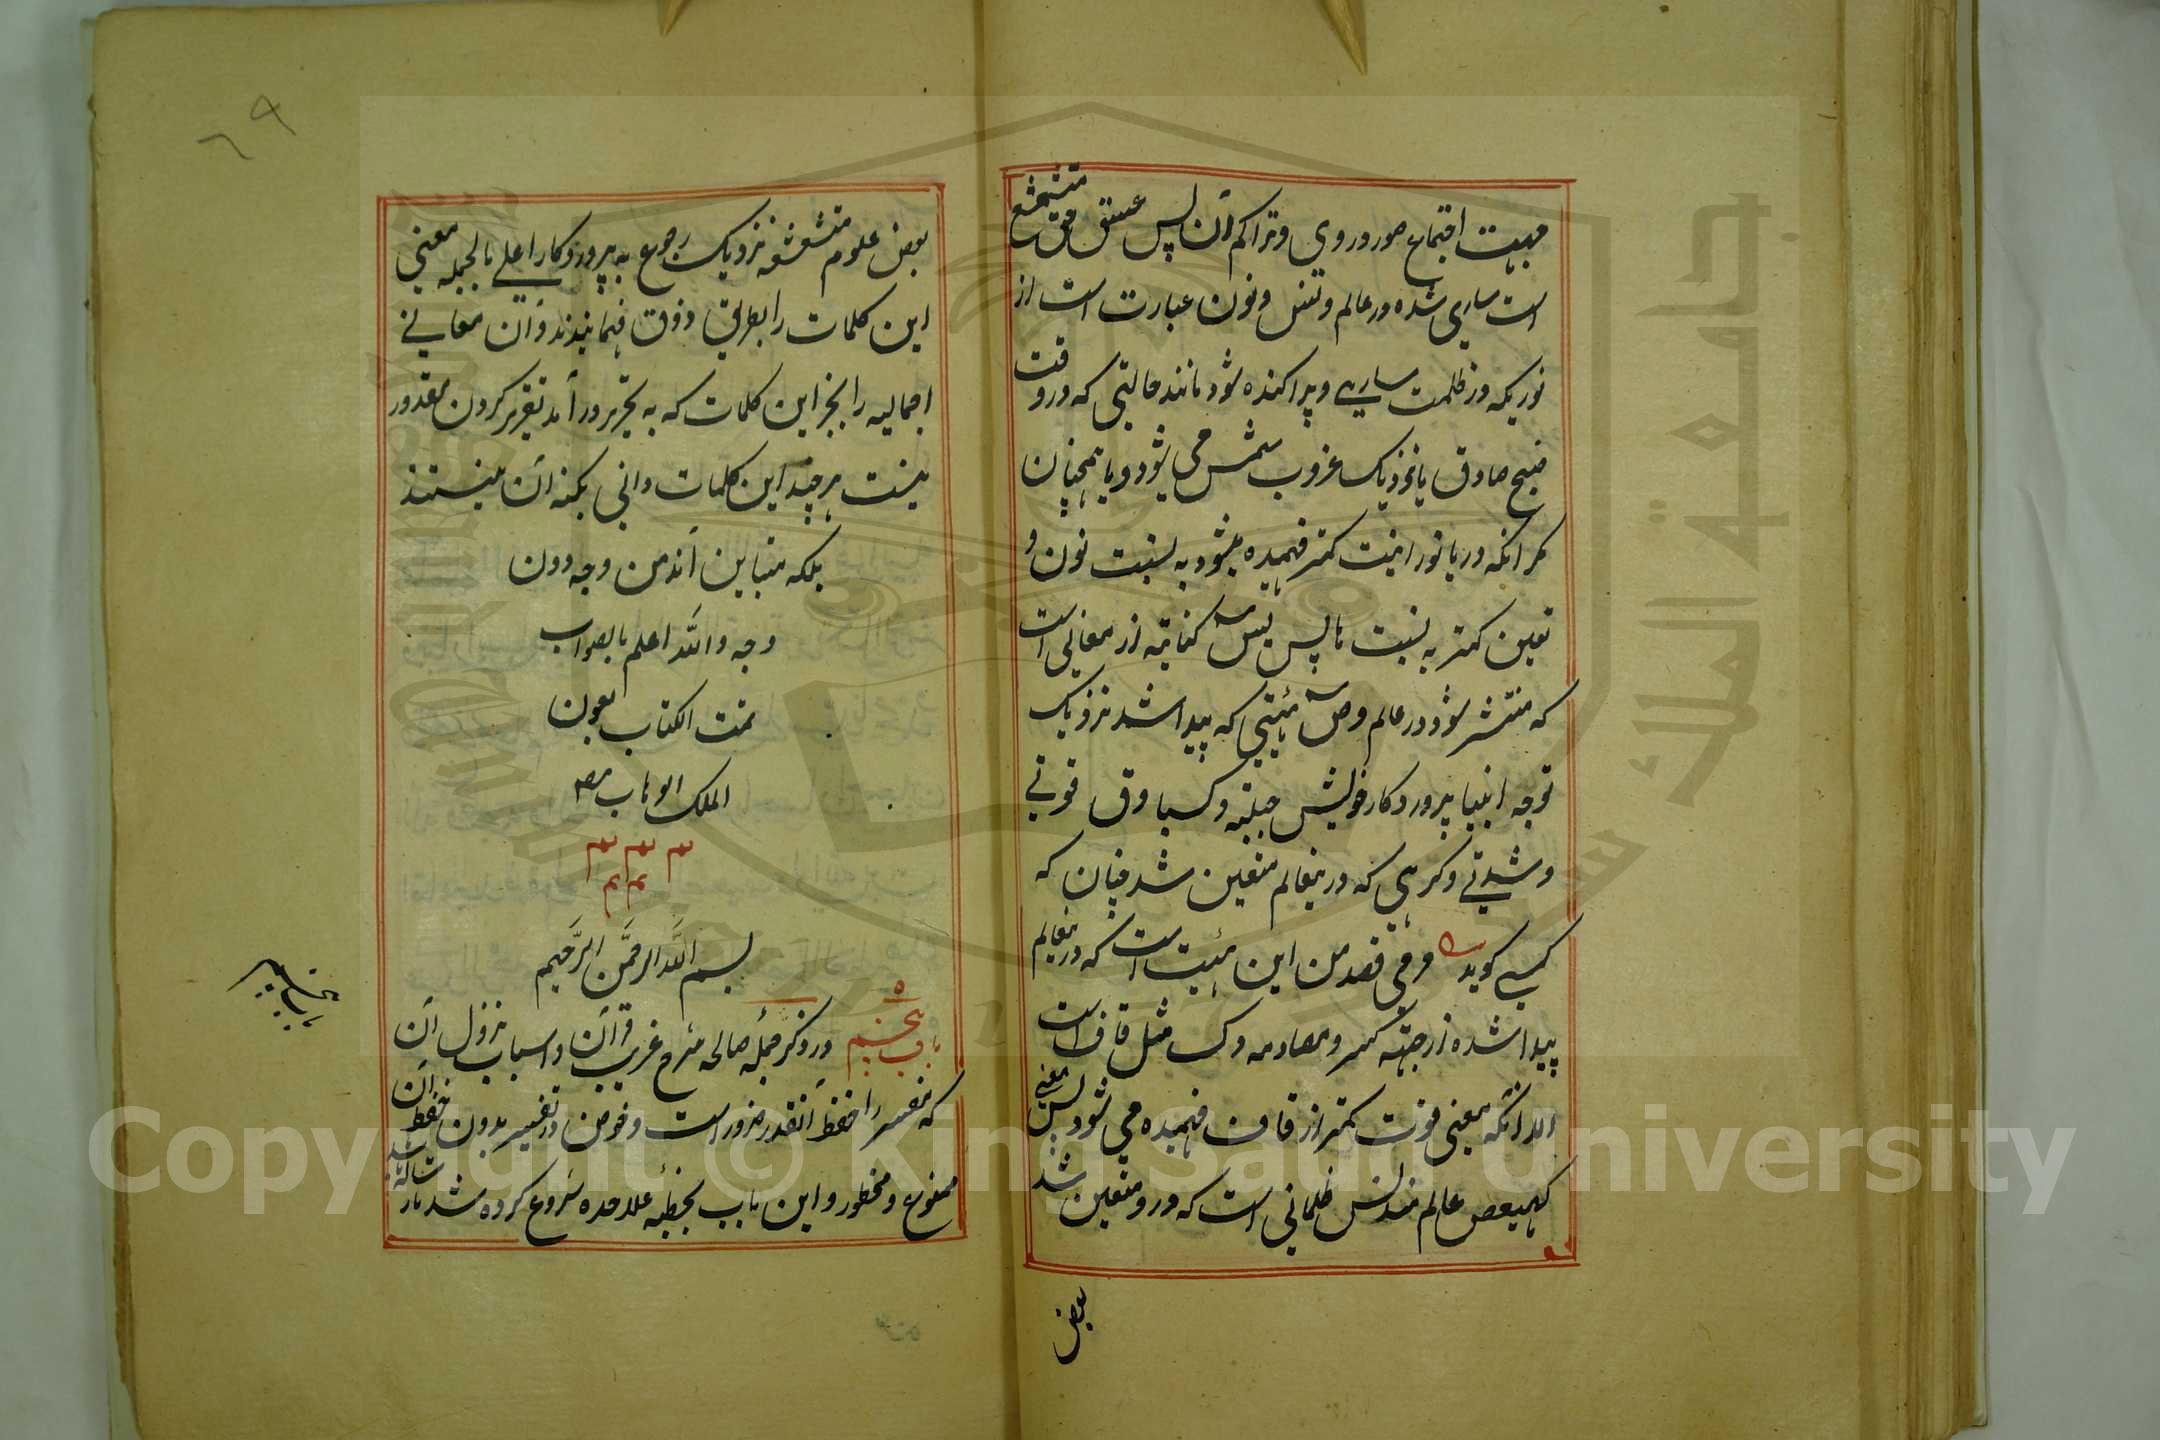 جهت اجتماع صور در وی و تراکم آن پس عسق حق متشعشع
است ساری شده در عالم و تنس و نون عبارت است از
نوریکه در ظلمت ساری و پراکنده شود مانند حالتی که در وقت
صبح صادق یا نزدیک غروب شمس می شود و یا همچنان
مگر آنکه در یا نورانیت کمتر فهمیده میشود به نسبت نون و
تعین کمتر به نسبت ها پس یس کنایة از معانی است
که منتشر شود در عالم و ص هیئتی که پیدا شد نزدیک
توجه انبیا بپروردکار خویش جبلتة و کسبا و ق قوتی
و شدتی و کرهی که درینعالم متعین شد چنان که
کسی کوید مرمی قصد من این هیئت است که درینعالم
پیدا شده از جهته کسر و مصادمه و ک مثل قاف است
الا آنکه معنی قوت کمتر از قاف فهمیده می شود پس معنی
کهیعص عالم متدنس ظلمانی است که در و متعین شد
بعض
٦٩
بعض علوم متشعشعه نزدیک رجوع به پروردکار اعلی بالجمله معنی
این کلمات را بطریق ذوق فهمانیدند و آن معانی
اجمالیه را بجز این کلمات که به تحریر در آمد تقریر کردن مقدور
نیست هرچند این کلمات وافی بکنه آن نیستند
بلکه متباین اند من وجه دون
وجه والله اعلم بالصواب
تمت الکتاب بعون
الملک الوهاب
بسم الله الرحمن الرحیم
باب پنجم در ذکر جمله صالحه شرح غریب قرآن و اسباب نزول آن
که مفسر را حفظ آنقدر ضرور است و خوض در تفسیر بدون حفظ آن
ممنوع و محظور و این باب بخطبه علاحده شروع کرده شد تا
باب پنجم
Copyright © King Saud University
جامعة الملك سعود